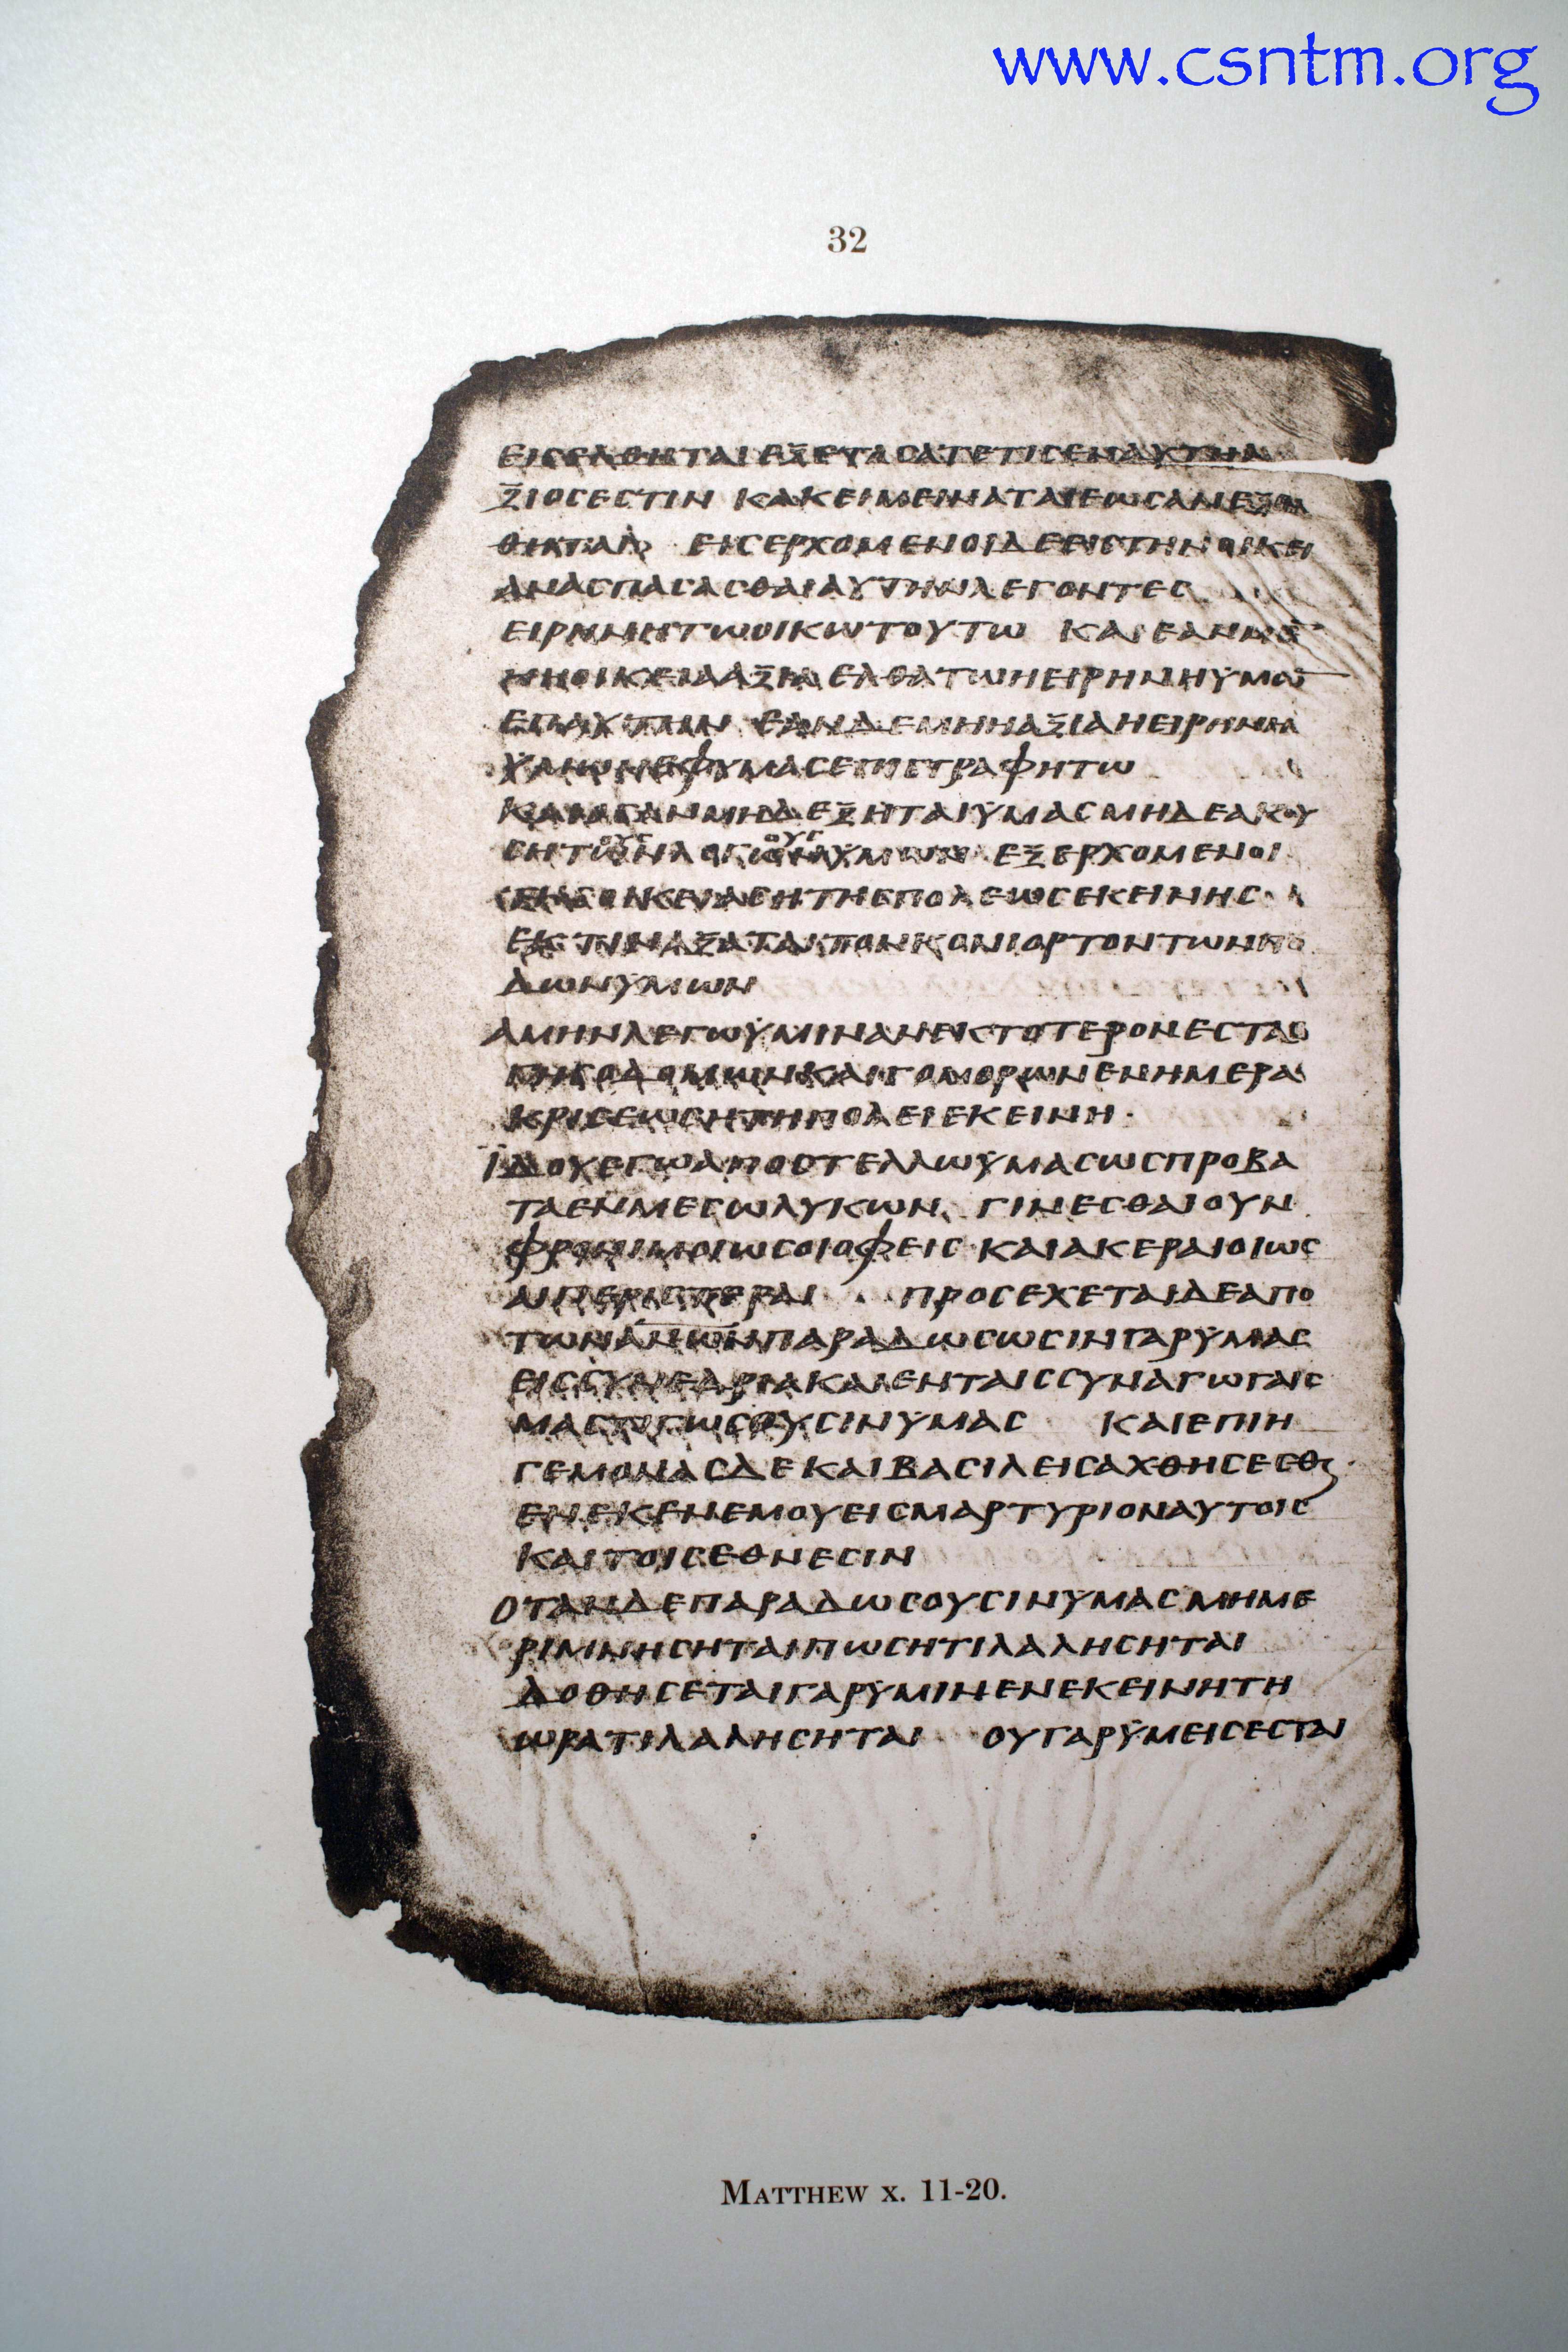 www.csntm.org
32
ΕΙΣΕΛΘΗΤΑΙ ΕΞΕΤΑΣΑΤΕΤΙΣΕΝΑΥΤΗΑ
ΞΙΟΣΕΣΤΙΝ ΚΑΚΕΙΜΕΙΝΑΤΑΙΕΩΣΑΝΕΞΕΛ
ΘΗΤΑΙ ΕΙΣΕΡΧΟΜΕΝΟΙΔΕΕΙΣΤΗΝΟΙΚΕΙ
ΑΝΑΣΠΑΣΑΣΘΑΙΑΥΤΗΝΛΕΓΟΝΤΕΣ
ΕΙΡΗΝΗΤΩΟΙΚΩΤΟΥΤΩ ΚΑΙΕΑΝΜΕ
ΗΟΙΚΕΙΑΑΞΙΑ ΕΛΘΑΤΩΗΕΙΡΗΝΗΫΜΩ
ΕΠΑΥΤΗΝ ΕΑΝΔΕΜΗΗΑΞΙΑΗΕΙΡΗΝΗ
ΫΜΩΝΕΦΥΜΑΣΕΠΙΣΤΡΑΦΗΤΩ
ΚΑΙΟΣΑΝΜΗΔΕΞΗΤΑΙΫΜΑΣΜΗΔΕΑΚΟΥ
ΣΗΤΩΝΛΟΓΩΝΫΜΩΝ ΕΞΕΡΧΟΜΕΝΟΙ
ΤΗΣΠΟΛΕΩΣΕΚΕΙΝΗΣ
ΕΚΤΙΝΑΞΑΤΑΙΤΟΝΚΟΝΙΟΡΤΟΝΤΩΝΠΟ
ΔΩΝΫΜΩΝ
ΑΜΗΝΛΕΓΩΫΜΙΝΑΝΕΚΤΟΤΕΡΟΝΕΣΤΑΙ
ΓΗΣΟΔΟΜΩΝΚΑΙΓΟΜΟΡΩΝΕΝΗΜΕΡΑ
ΚΡΙΣΕΩΣΗΤΗΠΟΛΕΙΕΚΕΙΝΗ·
ΪΔΟΥΕΓΩΑΠΟΣΤΕΛΛΩΫΜΑΣΩΣΠΡΟΒΑ
ΤΑΕΝΜΕΣΩΛΥΚΩΝ ΓΙΝΕΣΘΑΙΟΥΝ
ΦΡΟΝΙΜΟΙΩΣΟΙΟΦΕΙΣ ΚΑΙΑΚΕΡΑΙΟΙΩΣ
ΑΙΠΕΡΙΣΤΕΡΑΙ ΠΡΟΣΕΧΕΤΑΙΔΕΑΠΟ
ΤΩΝΑΝΩΝΠΑΡΑΔΩΣΩΣΙΝΓΑΡΫΜΑΣ
ΕΙΣΣΥΝΕΔΡΙΑΚΑΙΕΝΤΑΙΣΣΥΝΑΓΩΓΑΙΣ
ΜΑΣΤΙΓΩΣΟΥΣΙΝΫΜΑΣ ΚΑΙΕΠΙΗ
ΓΕΜΟΝΑΣΔΕΚΑΙΒΑΣΙΛΕΙΣΑΧΘΗΣΕΣΘΕ
ΕΝΕΚΕΝΕΜΟΥΕΙΣΜΑΡΤΥΡΙΟΝΑΥΤΟΙΣ
ΚΑΙΤΟΙΣΕΘΝΕΣΙΝ
ΟΤΑΝΔΕΠΑΡΑΔΩΣΟΥΣΙΝΫΜΑΣΜΗΜΕ
ΡΙΜΝΗΣΗΤΑΙΠΩΣΗΤΙΛΑΛΗΣΗΤΑΙ
ΔΟΘΗΣΕΤΑΙΓΑΡΫΜΙΝΕΝΕΚΕΙΝΗΤΗ
ΩΡΑΤΙΛΑΛΗΣΗΤΑΙ ΟΥΓΑΡΫΜΕΙΣΕΣΤΑΙ
MATTHEW X. 11-20.